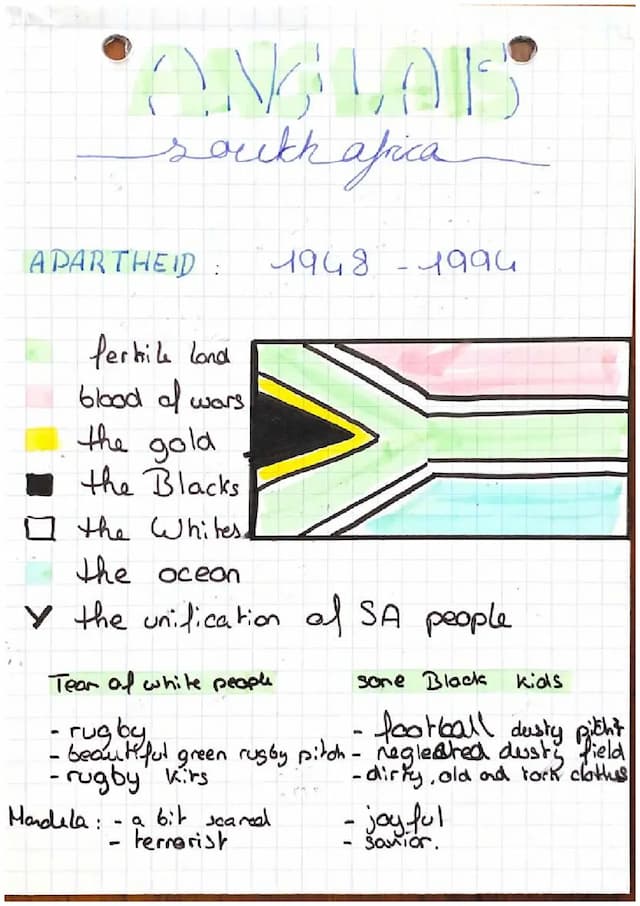 ANGLAIS
south africa
APARTHEID : 1948 - 1994
fertile land
blood of wars
the gold
the Blacks
the Whites
the ocean
Y the unification of SA people
Team of white people
some Black kids
- rugby
- beautiful green rugby pitch
- rugby kits
- football dusty pitch
- neglected dusty field
- dirty, old and torn clothes
Mandela : - a bit scared
- terrorist
- joyful
- savior.